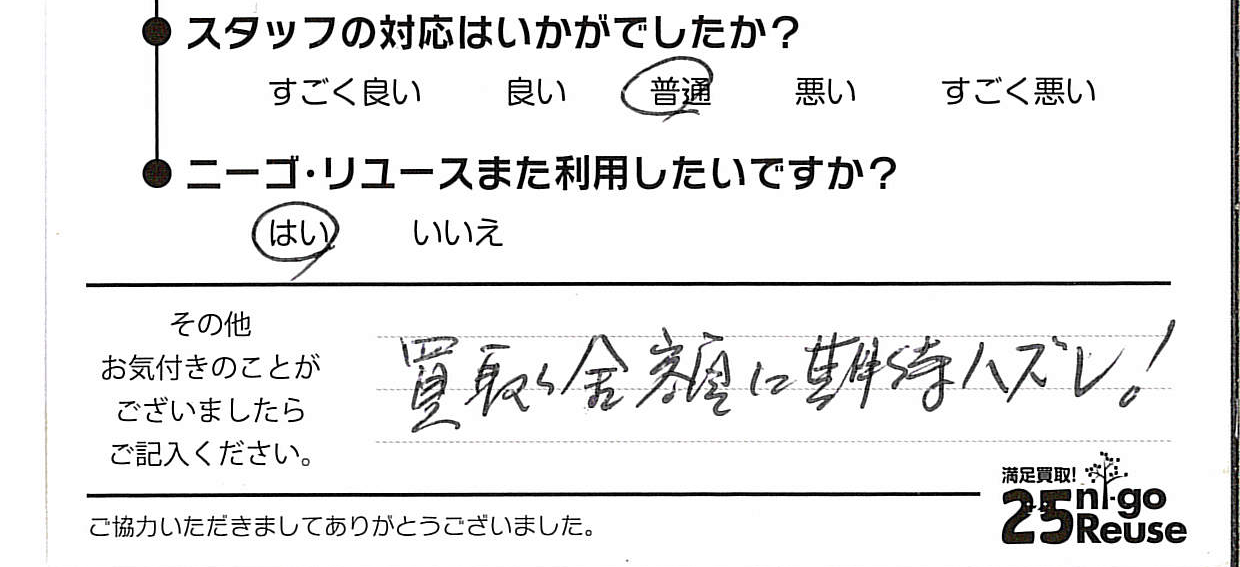 スタッフの対応はいかがでしたか?
すごく良い 良い 普通 悪い すごく悪い
ニーゴ・リユースまた利用したいですか?
はい いいえ
その他
お気付きのことが
ございましたら
ご記入ください。
買取り金額に期待ハズレ!
満足買取!
25 ni-go
Reuse
ご協力いただきましてありがとうございました。